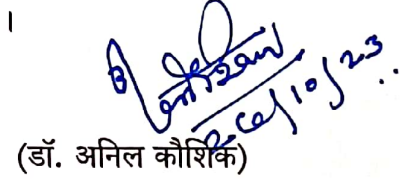 ।
26/10/23
(डॉ. अनिल कौशिक)